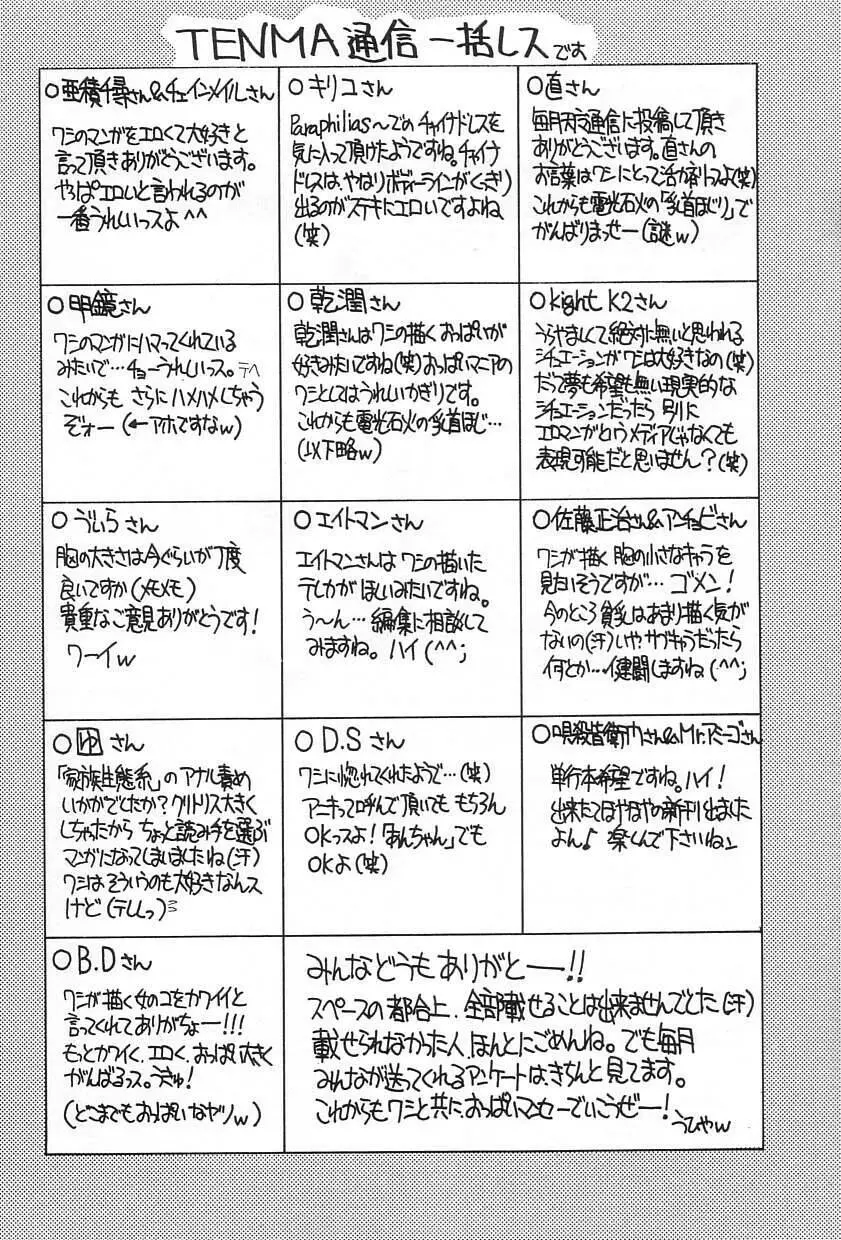 TENMA通信一括レスです
○亜積千尋さん&チェインメイルさん
ワシのマンガをエロくて大好きと
言って頂きありがとうございます。
やっぱエロいと言われるのが
一番うれしいっスよ^^
○キリコさん
Paraphilias〜でのチャイナドレスを
気に入って頂けたようですね。チャイナ
ドレスは、やはりボディーラインがくっきり
出るのがステキにエロいですよね
(笑)
○直さん
毎月天魔通信に投稿して頂き
ありがとうございます。直さんの
お言葉はワシにとって活力剤っスよ(笑)
これからも電光石火の「乳首ほじり」で
がんばりまっせー(謎w)
○明鏡さん
ワシのマンガにハマってくれている
みたいで…チョーうれしいっス。デヘ
これからも さらにハメハメしちゃう
ぞォー(←アホですなw)
○乾潤さん
乾潤さんはワシの描くおっぱいが
好きみたいですね(笑)おっぱいマニアの
ワシとしてはうれしいかぎりです。
これからも電光石火の乳首ほじ…
(以下略w)
○Kight K2さん
うらやましくて絶対に無いと思われる
シチュエーションがワシは大好きなの(笑)
だって夢も希望も無い現実的な
シチュエーションだったら 別に
エロマンガというメディアじゃなくても
表現可能だと思いません?(笑)
○うぃらさん
胸の大きさは今ぐらいが丁度
良いですか(メモメモ)
貴重なご意見ありがとうです!
ワーイw
○エイトマンさん
エイトマンさんは ワシの描いた
テレカがほしいみたいですね。
う〜ん…編集に相談して
みますね。ハイ(^^;
○佐藤正治さん&アンチョビさん
ワシが描く胸の小さなキャラを
見たいそうですが… ゴメン!
今のところ 貧乳はあまり描く気が
ないの(汗)いや、サブキャラだったら
何とか…イ建闘しますね(^^;
○ゆさん
「家族生態系」のアナル責め
いかがでしたか?クリトリス大きく
しちゃたから ちょっと読み手を選ぶ
マンガになってしまいましたね(汗)
ワシはそういうのも大好きなんス
けど(テレしっ)
○D.Sさん
ワシに惚れてくれたようで…(笑)
アニキって呼んで頂いても もちろん
OKっスよ!「あんちゃん」でも
OKよ(笑)
さん&Mr.アミーゴさん
単行本希望ですね。ハイ!
出来たてほやほやの新刊出ました
よん♪ 楽しんで下さいね」
○B.Dさん
ワシが描く女のコをカワイイと
言ってくれてありがちょー!!!
もっとカワイく、エロく、おっぱい大きく
がんばるっス。うきゅ!
(どこまでもおっぱいなヤツw)
みんなどうもありがとー!!
スペースの都合上、全部載せることは出来ませんでした(汗)
載せられなかった人、ほんとにごめんね。でも毎月
みんなが送ってくれるアンケートは、きちんと見てます。
これからもワシと共におっぱいマンセーでいこうぜー!
うひゃw